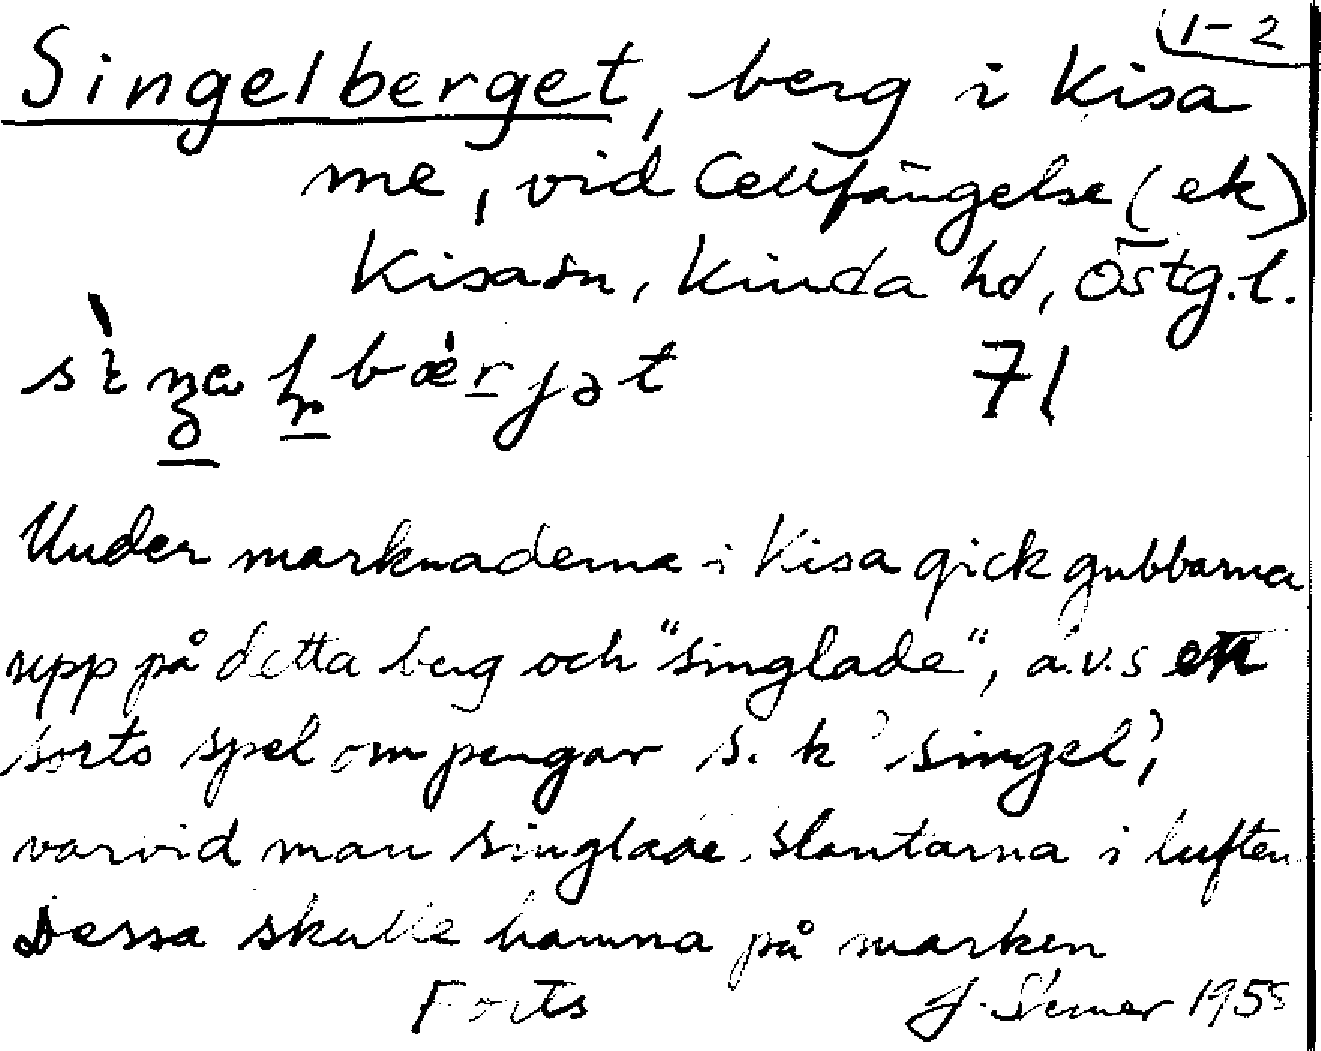 1-2
Singelberget, berg i Kisa
me, vid Cellfängelse (ek)
Kisa sn, Kinda hd, Östg.l.
71
Under marknaderna i Kisa gick gubbarna
upp på detta berg och "singlade", d.v.s en
sorts spel om pengar s.k 'singel',
varvid man singlade slantarna i luften
Dessa skulle hamna på marken
Forts J. Sterner 1955